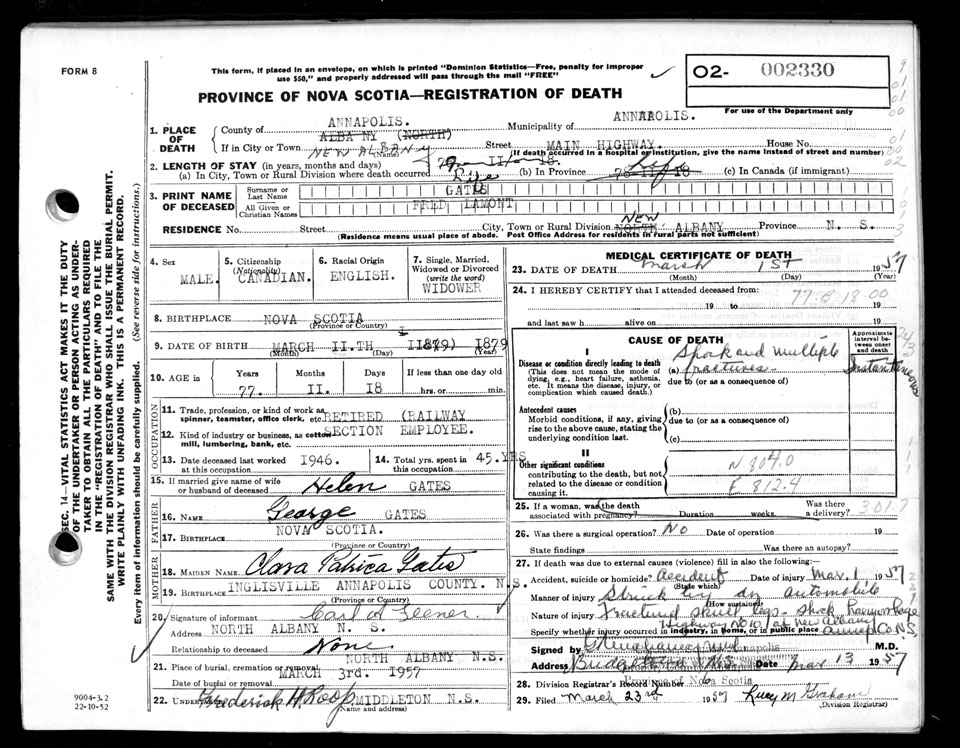 FORM 8
This form, if placed in an envelope, on which is printed "Dominion Statistics—Free, penalty for improper
use $50," and properly addressed will pass through the mail "FREE"
O2- 002330
For use of the Department only
PROVINCE OF NOVA SCOTIA—REGISTRATION OF DEATH
1. PLACE OF DEATH
County of ANNAPOLIS. Municipality of ANNAPOLIS.
ALBANY (NORTH)
If in City or Town NEW ALBANY (Name) Street MAIN HIGHWAY. House No.
(If death occurred in a hospital or institution, give the name instead of street and number)
2. LENGTH OF STAY (in years, months and days)
(a) In City, Town or Rural Division where death occurred Life (b) In Province Life 78-11-18 (c) In Canada (if immigrant)
3. PRINT NAME OF DECEASED
Surname or Last Name GATES
All Given or Christian Names FRED LAMONT
RESIDENCE No. Street City, Town or Rural Division NORTH NEW ALBANY Province N. S.
(Residence means usual place of abode. Post Office Address for residents in rural parts not sufficient)
4. Sex MALE.
5. Citizenship (Nationality) CANADIAN.
6. Racial Origin ENGLISH.
7. Single, Married, Widowed or Divorced (write the word) WIDOWER
8. BIRTHPLACE NOVA SCOTIA
(Province or Country)
9. DATE OF BIRTH MARCH 11.TH (1879) 1879
(Month) (Day) (Year)
10. AGE in Years Months Days If less than one day old
77. 11. 18 hrs. or min.
OCCUPATION
11. Trade, profession, or kind of work as spinner, teamster, office clerk, etc. RETIRED (RAILWAY
12. Kind of industry or business, as cotton mill, lumbering, bank, etc. SECTION EMPLOYEE.
13. Date deceased last worked at this occupation 1946.
14. Total yrs. spent in this occupation 45.YRS
15. If married give name of wife or husband of deceased Helen GATES
FATHER
16. NAME George GATES
17. BIRTHPLACE NOVA SCOTIA.
(Province or Country)
MOTHER
18. MAIDEN NAME Clara Patrica Gates
19. BIRTHPLACE INGLISVILLE ANNAPOLIS COUNTY. N.S.
(Province or Country)
20. Signature of informant Carl
Address NORTH ALBANY N. S.
Relationship to deceased None
21. Place of burial, cremation or removal NORTH ALBANY N.S.
Date of burial or removal MARCH 3rd. 1957
22. UNDERTAKER Frederick H Roop MIDDLETON N.S.
(Name and address)
9004-3.2
22-10-52
SEC. 14—VITAL STATISTICS ACT MAKES IT THE DUTY
OF THE UNDERTAKER OR PERSON ACTING AS UNDER-
TAKER TO OBTAIN ALL THE PARTICULARS REQUIRED
IN THE "REGISTRATION OF DEATH" AND TO FILE THE
SAME WITH THE DIVISION REGISTRAR WHO SHALL ISSUE THE BURIAL PERMIT.
WRITE PLAINLY WITH UNFADING INK. THIS IS A PERMANENT RECORD.
Every item of information should be carefully supplied. (See reverse side for instructions.)
MEDICAL CERTIFICATE OF DEATH
23. DATE OF DEATH March 1ST 1957
(Month) (Day) (Year)
24. I HEREBY CERTIFY that I attended deceased from:
19 to 19
and last saw h alive on 19
CAUSE OF DEATH
Approximate interval between onset and death
I
Disease or condition directly leading to death
(This does not mean the mode of dying, e.g., heart failure, asthenia, etc. It means the disease, injury, or complication which caused death.)
(a) Shock and multiple fractures Instantaneous
due to (or as a consequence of)
Antecedent causes
Morbid conditions, if any, giving rise to the above cause, stating the underlying condition last.
(b)
due to (or as a consequence of)
(c)
II
Other significant conditions
contributing to the death, but not related to the disease or condition causing it.
N 804.0
E 812.4
25. If a woman, was the death associated with pregnancy? Duration weeks. Was there a delivery?
26. Was there a surgical operation? No Date of operation 19
State findings Was there an autopsy?
27. If death was due to external causes (violence) fill in also the following:
Accident, suicide or homicide? Accident Date of injury Mar. 1 1957
(State which)
Manner of injury Struck by an automobile
(How sustained)
Nature of injury Fractured skull legs - shock haemorrhage
Highway No 10 at New Albany
Specify whether injury occurred in industry, in home, or in public place Annap Co N.S.
Signed by M.D.
Address Date Mar 13 1957
28. Division Registrar's Record Number 6
Province of Nova Scotia
29. Filed March 23rd 1957 Lucy M Graham
(Division Registrar)